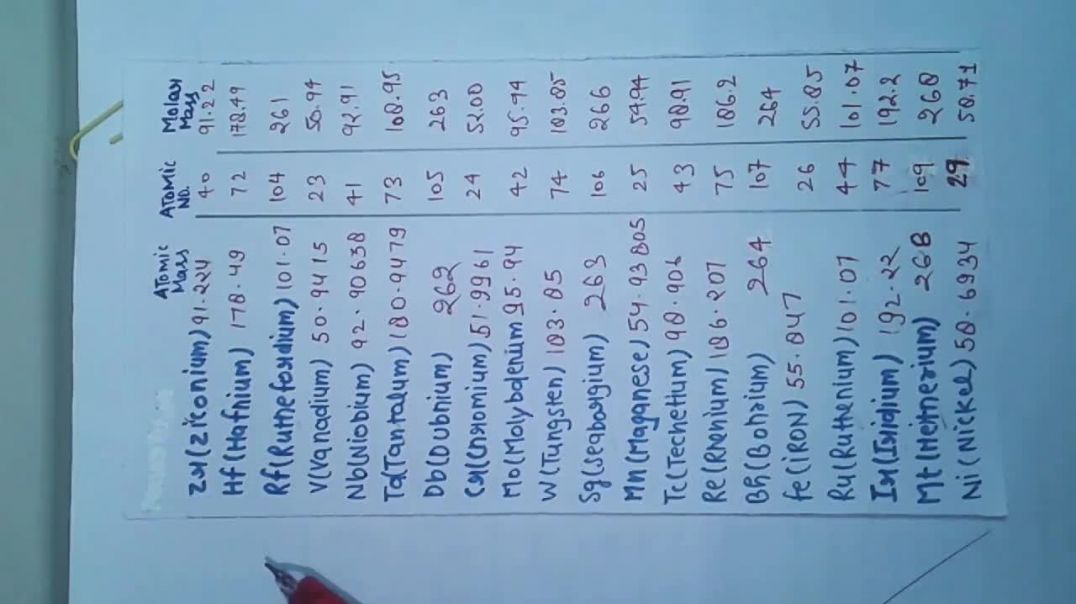 ATomic Mass ATomic No. Molar Mass
Zr(Ziconium) 91.224 40 91.22
Hf(Hafnium) 178.49 72 178.49
Rf(Ruthefordium) 101.07 104 261
V(Vanadium) 50.9415 23 50.94
Nb(Niobium) 92.90638 41 92.91
Ta(Tantalum) 180.9479 73 180.95
Db(Dubnium) 262 105 263
Cr(Chromium) 51.9961 24 52.00
Mo(Molybdenum 95.94 42 95.94
W(Tungsten) 183.85 74 183.85
Sg(Seaborgium) 263 106 266
Mn(Maganese) 54.93805 25 54.94
Tc(Techetium) 98.906 43 98.91
Re(Rhenium) 186.207 75 186.2
Bh(Bohrium) 264 107 264
Fe(iRON) 55.847 26 55.85
Ru(Ruthenium) 101.07 44 101.07
Ir(Iridium) 192.22 77 192.2
Mt(Meitnerium) 268 109 268
Ni(Nickel) 58.6934 29 58.71